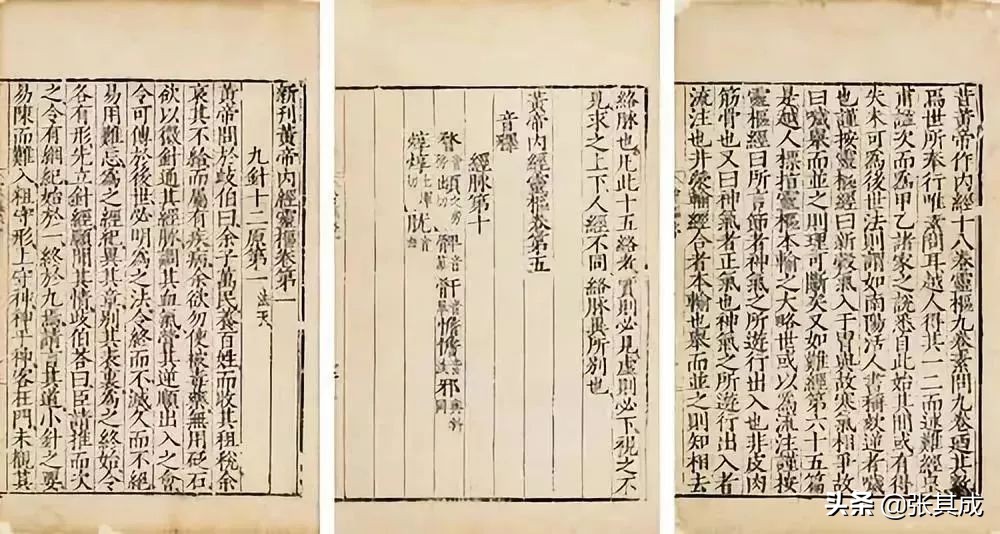 昔黃帝作內經十八卷靈樞九卷素問九卷迺其數
焉世所奉行唯素問耳越人得其一二而述難經皇
甫謐次而為甲乙諸家之說悉自此始其間或有得
失未可為後世法則謂如南陽活人書稱欬逆者噦
也謹按靈樞經曰新穀氣入于胃與故寒氣相爭故
曰噦舉而並之則理可斷矣又如難經第六十五篇
是越人標指靈樞本輸之大略世或以為流注謹按
靈樞經曰所言節者神氣之所遊行出入也非皮肉
筋骨也又曰神氣者正氣也神氣之所遊行出入者
流注也井滎輸經合者本輸也舉而並之則知相去
絡脉也凡此十五絡者實則必見虛則必下視之不
見求之上下人經不同絡脉異所別也
黃帝內經靈樞卷第五
音釋
經脉第十
新刊黃帝內經靈樞卷第一
九針十二原第一 法天
黃帝問於歧伯曰余子萬民養百姓而收其租稅余
哀其不給而屬有疾病余欲勿使被毒藥無用砭石
欲以微針通其經脉調其血氣營其逆順出入之會
令可傳於後世必明為之法令終而不滅久而不絕
易用難忘為之經紀異其章別其表裏為之終始令
各有形先立針經願聞其情歧伯荅曰臣請推而次
之令有綱紀始於一終於九焉請言其道小針之要
易陳而難入粗守形上守神神乎神客在門未覩其
头条 @张其成